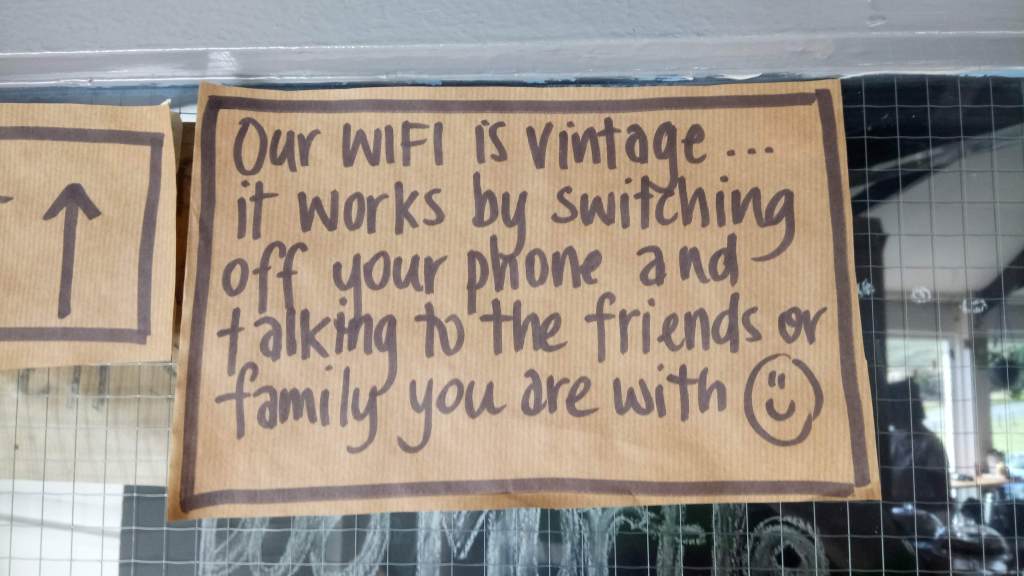 Our WIFI is vintage...
it works by switching
off your phone and
talking to the friends or
family you are with